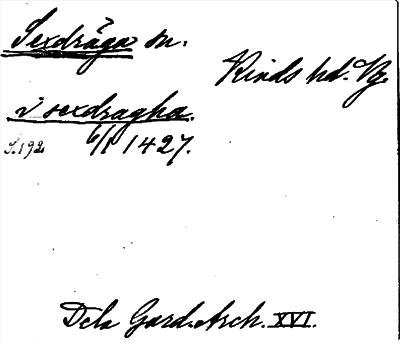 Sexdräga sn.
Kinds hd. Vg.
i sexdragha.
S. 192 6/1 1427.
Dela Gard. Arch. XVI.